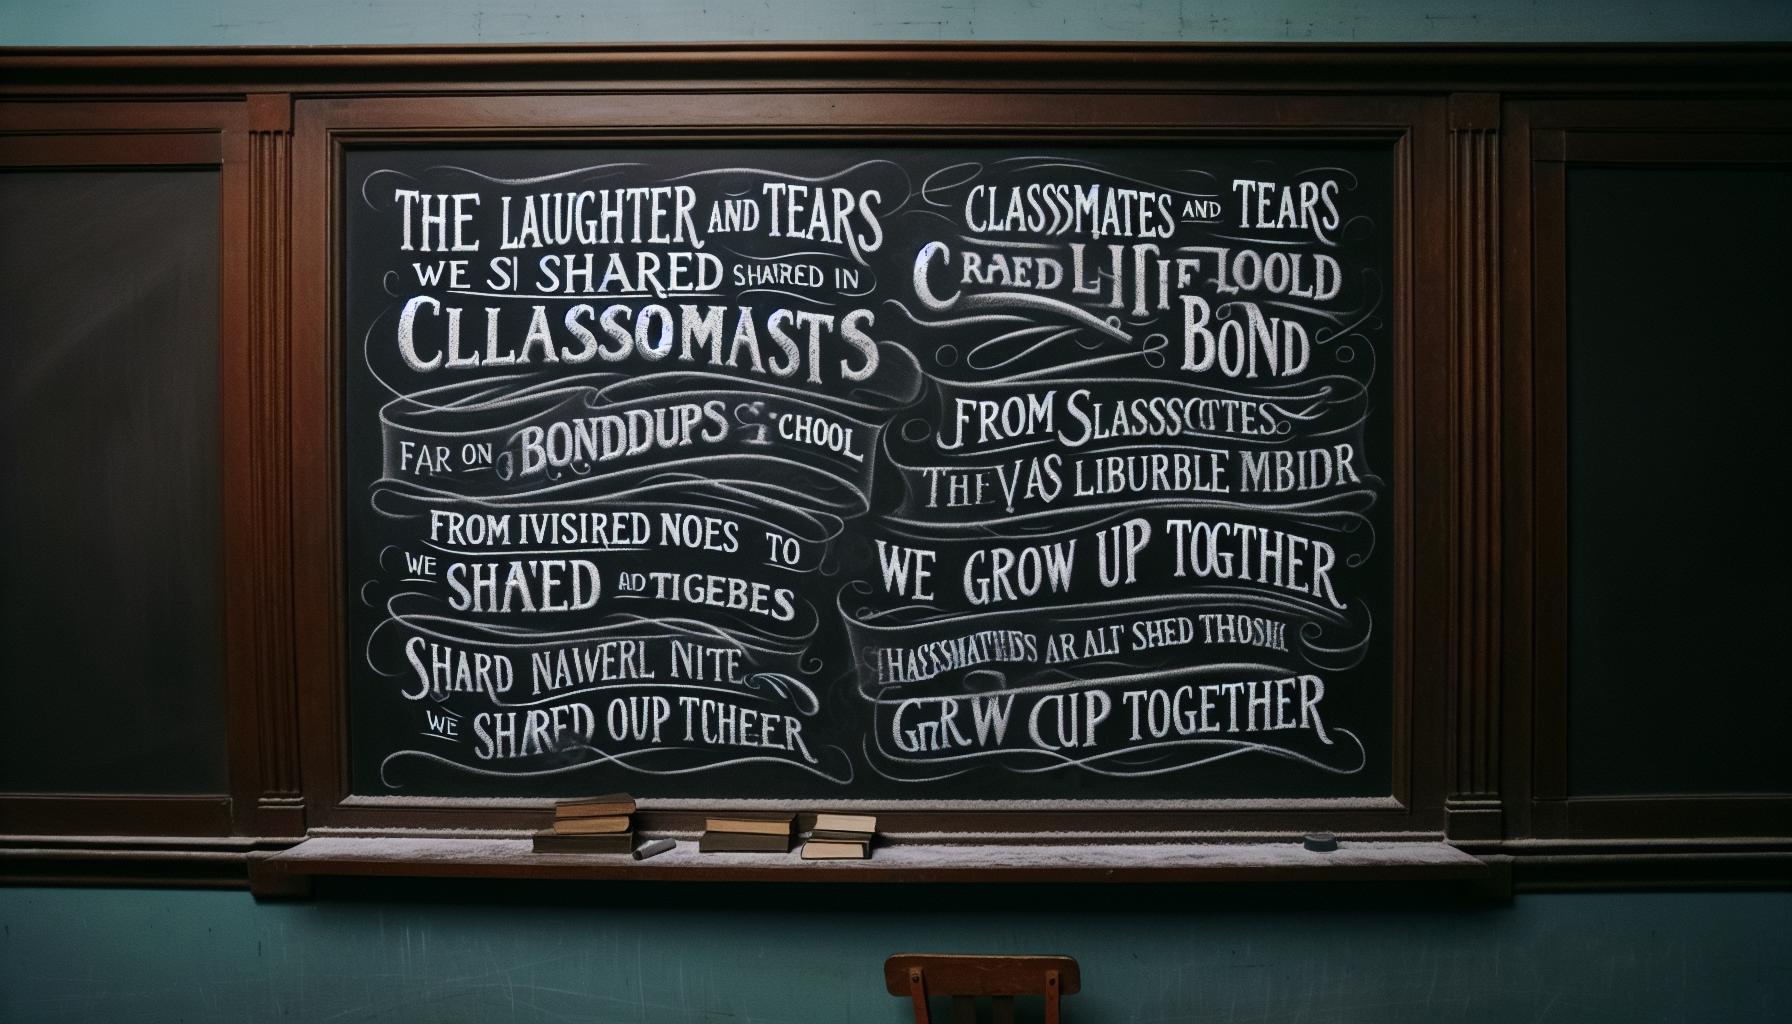 THE LAUUGHTER AND TEARS
WE SI SHARED SHARED IN
CLLASSOMASTS
FAR ON BONDDUPS CHOOL
FROM IVISIRED NOES TO
WE SHA'ED AD TIGEBES
SHARD NAWERL NITE
WE SHARED OUP TCHEER
CLASSSMATES AND TEARS
CRAED
BOND
FROM SLASSSCTTES
THE VAS LIBURBLE MBIDR
WE GROW UP TOGTHER
AR ALT SHED
GRRW CUP TOGETHER